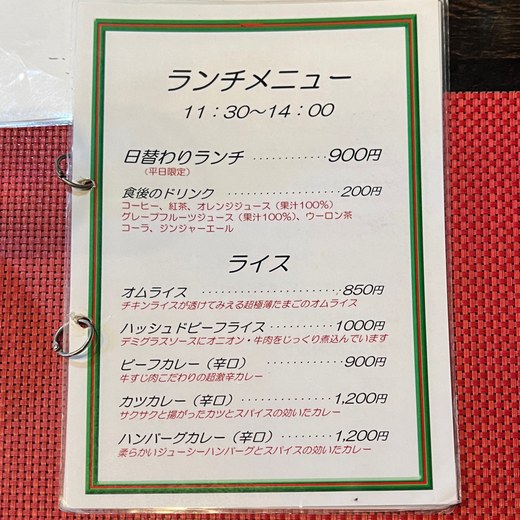 ランチメニュー
11：30～14：00
日替わりランチ ············ 900円
（平日限定）
食後のドリンク ············ 200円
コーヒー、紅茶、オレンジジュース（果汁100％）
グレープフルーツジュース（果汁100％）、ウーロン茶
コーラ、ジンジャーエール
ライス
オムライス ···················· 850円
チキンライスが透けてみえる超極薄たまごのオムライス
ハッシュドビーフライス ·········· 1000円
デミグラスソースにオニオン・牛肉をじっくり煮込んでいます
ビーフカレー（辛口） ············ 900円
牛すじ肉こだわりの超激辛カレー
カツカレー（辛口） ·········· 1,200円
サクサクと揚がったカツとスパイスの効いたカレー
ハンバーグカレー（辛口） ········ 1,200円
柔らかいジューシーハンバーグとスパイスの効いたカレー